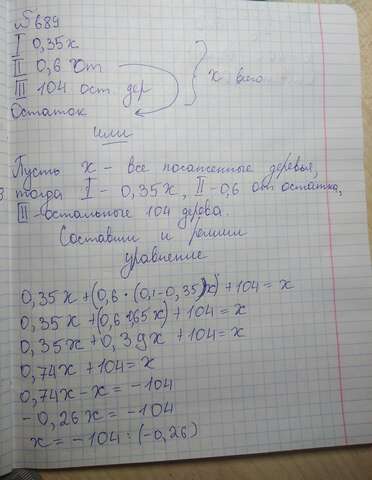 №689
I 0,35x
II 0,6 от
III 104 ост. дер
Остаток
x всего
или
Пусть x - все посаженные деревья,
тогда I - 0,35x, II - 0,6 от остатка,
III - остальные 104 дерева.
Составим и решим
уравнение
0,35x + (0,6 · (0,1 - 0,35)x) + 104 = x
0,35x + (0,6 1,65x) + 104 = x
0,35x + 0,39x + 104 = x
0,74x + 104 = x
0,74x - x = -104
-0,26x = -104
x = -104 : (-0,26)